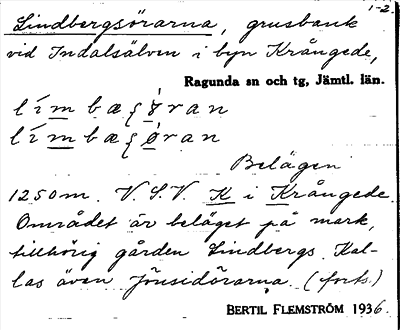 1-2.
Lindbergsörarna, grusbank
vid Indalsälven i byn Krångede,
Ragunda sn och tg, Jämtl. län.
Belägen
1250 m. V.S.V. K i Krångede.
Området är beläget på mark,
tillhörig gården Lindbergs. Kal-
las även Jönsidörarna. (forts.)
BERTIL FLEMSTRÖM 1936.